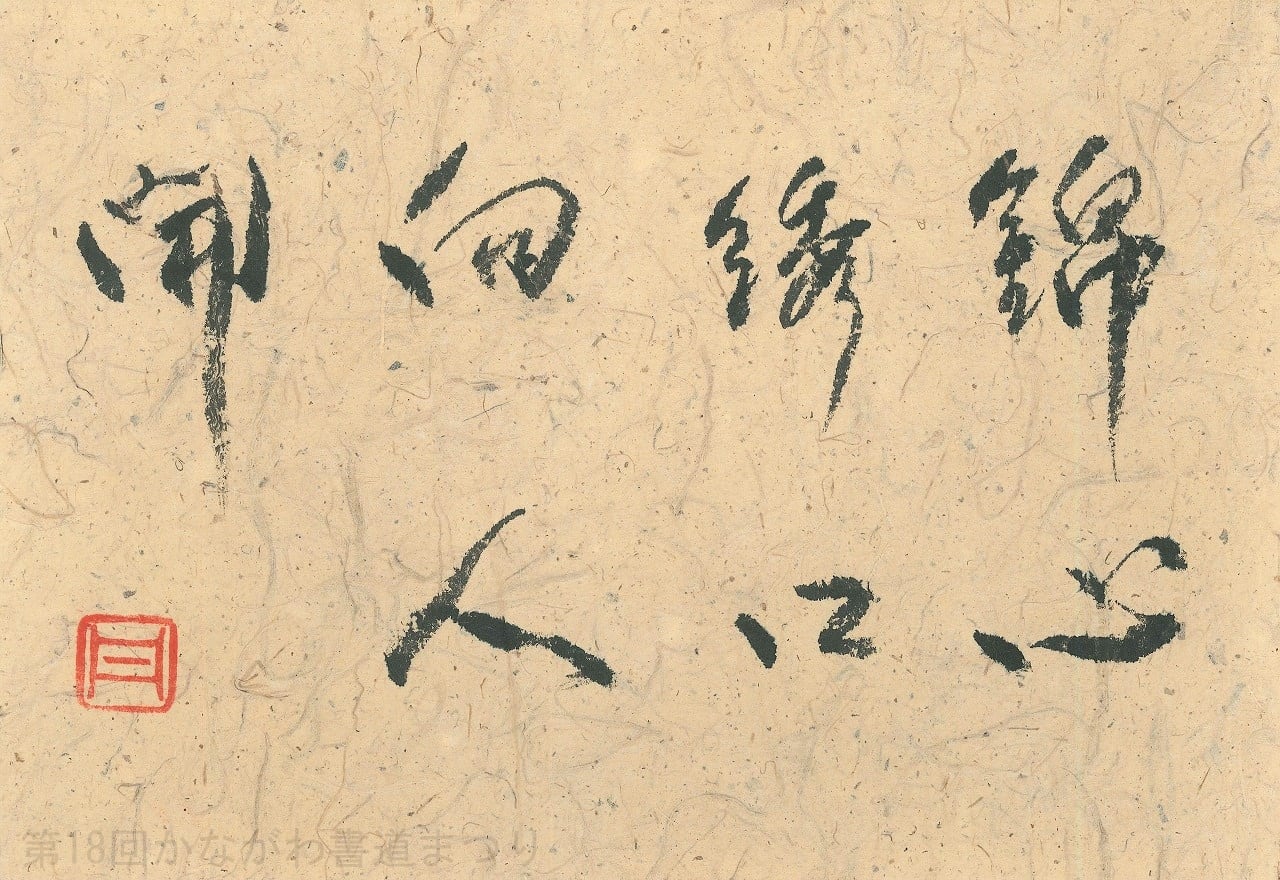 錦心
綉口
向人
開
第18回かながわ書道まつり